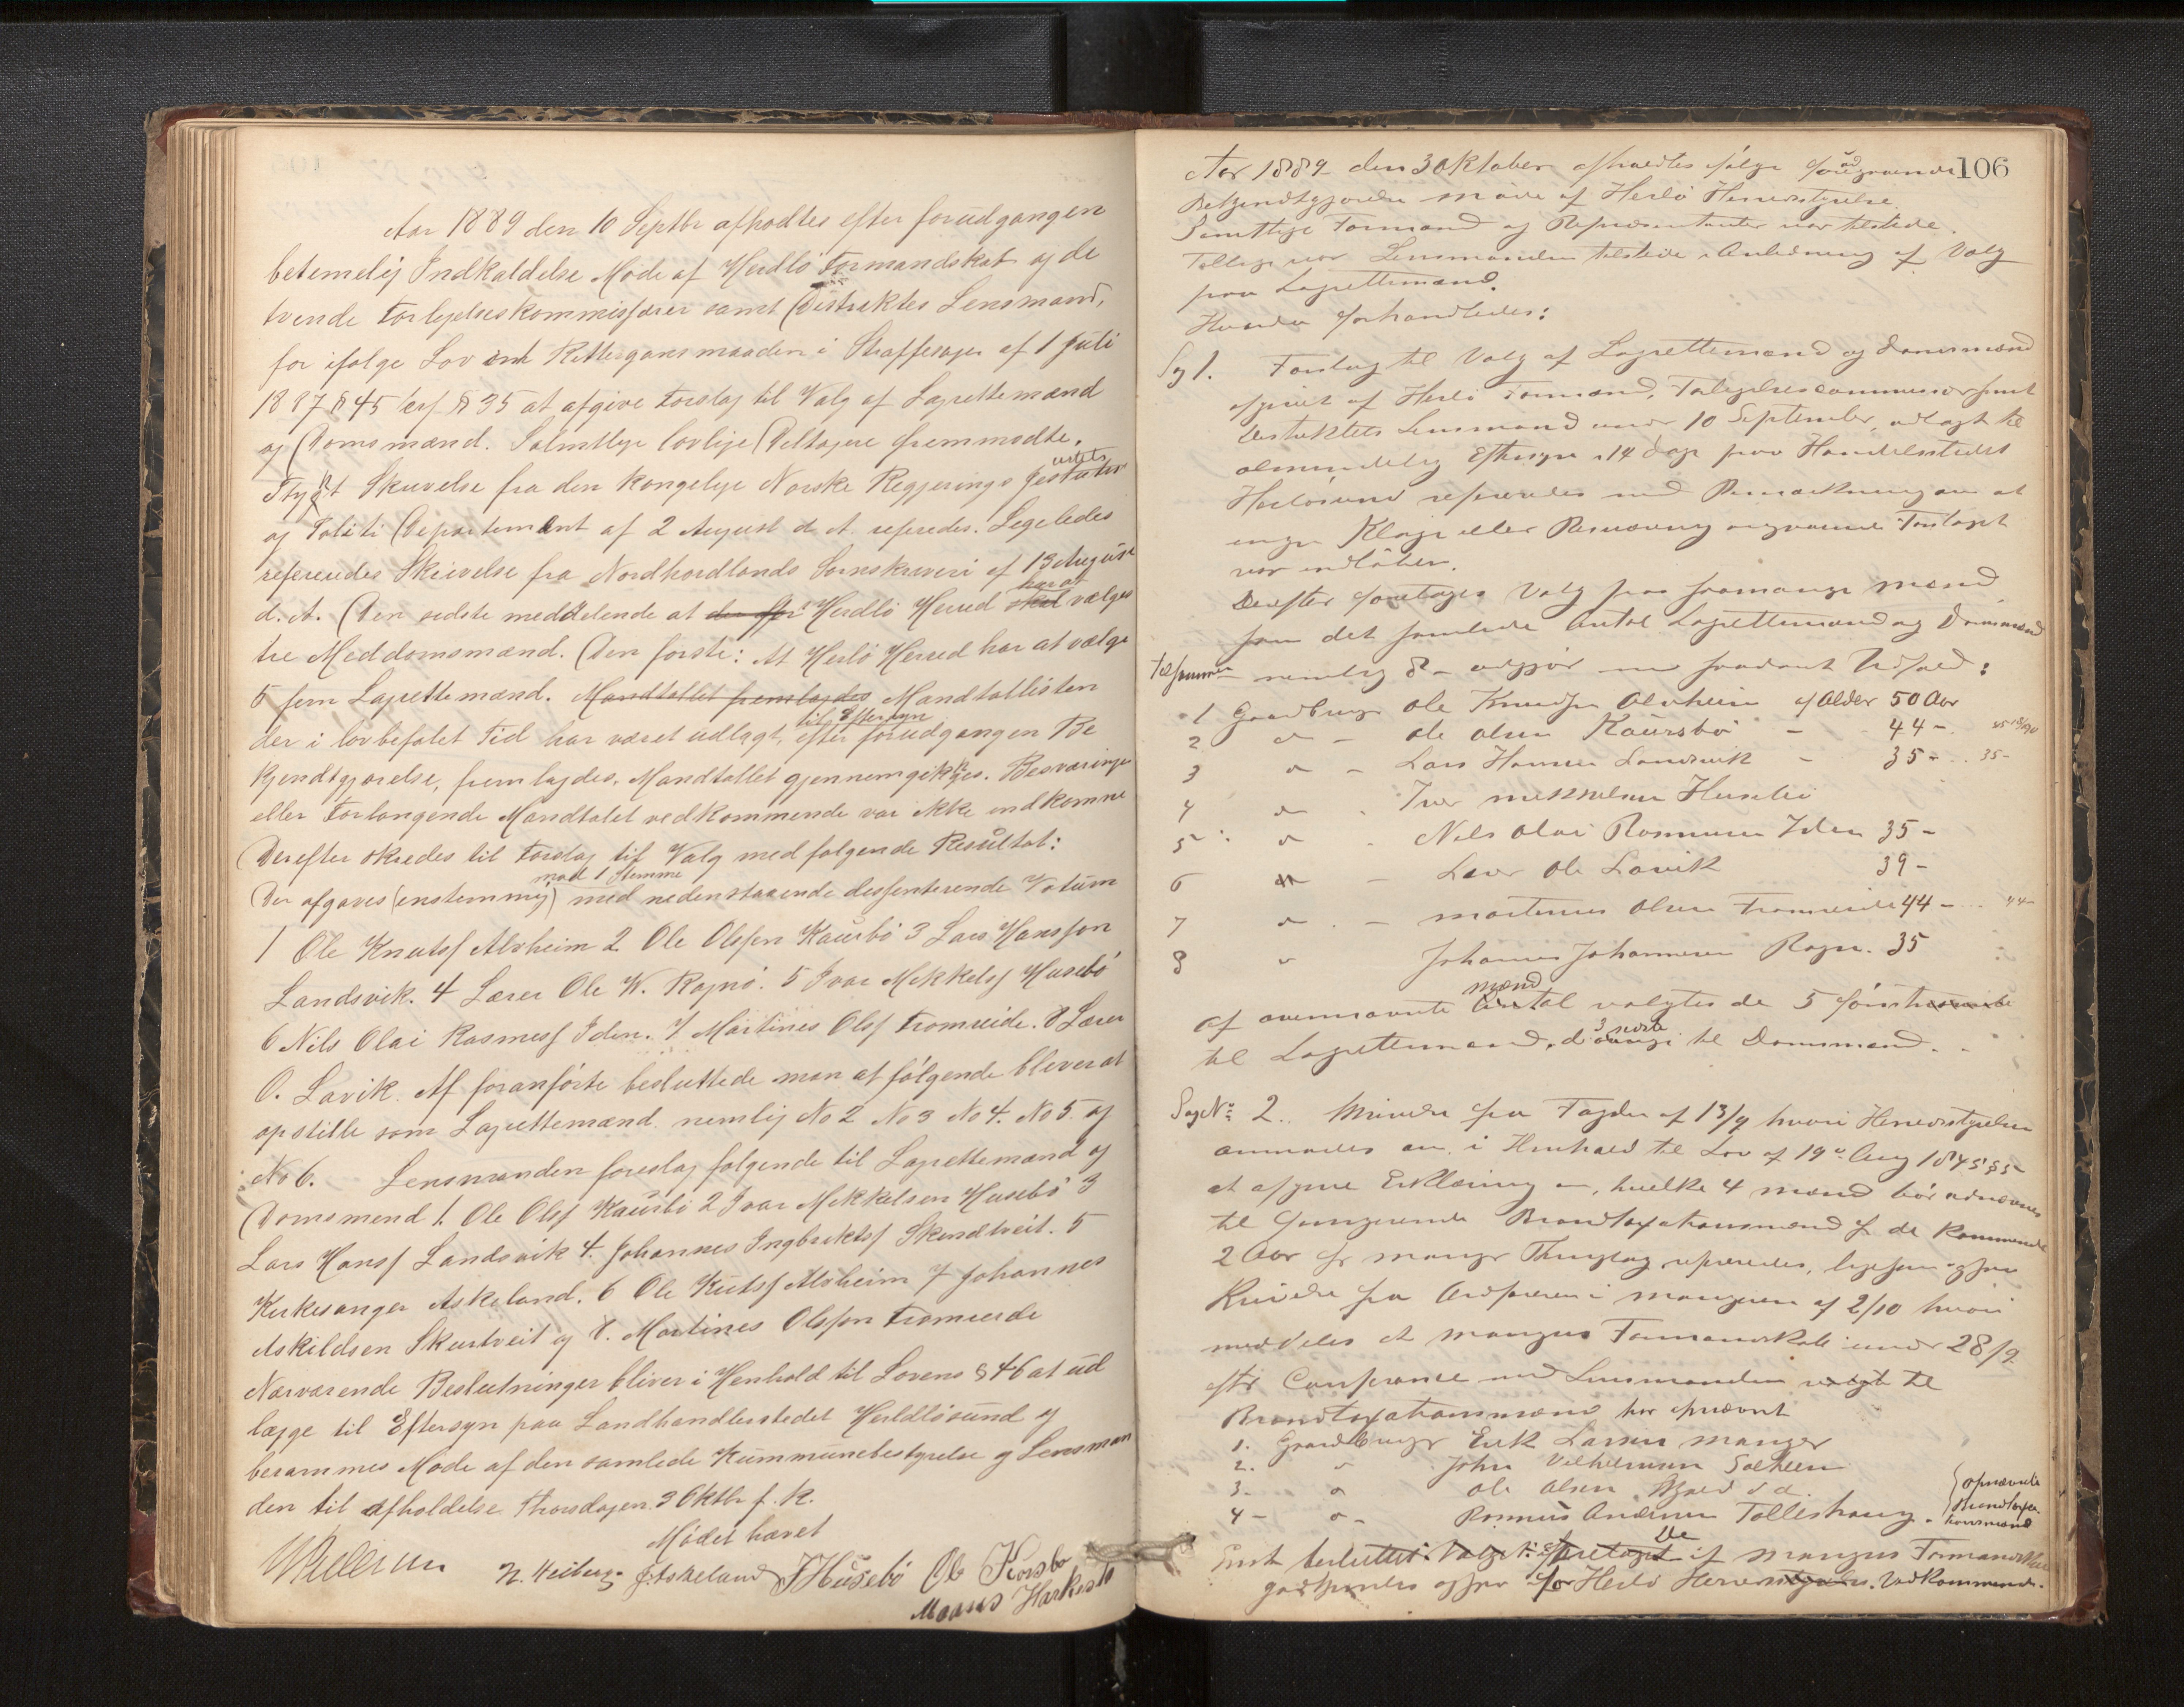 Aar 1889 den 10 Septbr afhodtes efter forudgangen
betemelig Indkaldelse Møde af Herdlø Formandskab og de
tvende Forligelseskommissærer samt Distriktes Lensmand,
for ifølge Lov om Rettergansmaaden i Straffesager af 1 Juli
1887 § 45 cf § 35 at afgive Forslag til Valg af Lagrettemænd
og Domsmænd. Samtlige lovlige Deltagere fremmødte.
Skrivelse fra den kongelige Norske Regjerings Justits
og Politi Departement af 2 August d. A. referedes. Ligeledes
refereredes Skrivelse fra Nordhordlands Sornskriveri af 13 August
d. A. Den sidste meddelende at Herdlø Herred har at vælge
tre Meddomsmænd. Den første: At Herlø Herred har at vælge
5 fem Lagrettemænd. Mandtallet fremlagdes Mandtallisten
der i lovbefalet Tid har været udlagt til Eftersyn efter forudgangen Be
kjendtgjørelse, fremlagdes. Mandtallet gjennemgikkes. Besværinger
eller Forlangende Mandtalet vedkommende var ikke indkomne
Derefter skredes til Forslag til Valg med følgende Resultat:
Der afgaves (enstemmig) mod 1 Stemme med nedenstaaende dessenterende Votum
1 Ole Knutsf Alvheim 2 Ole Olsfen Kaursbø 3 Lars Hansfon
Landsvik. 4 Lærer Ole W. Rognø. 5 Ivar Mikkelsf Husebø
6 Nils Olai Rasmesf Iden. 7 Martines Olsf Fromreide. 8 Lærer
O. Lavik. Af foranførte besluttede man at følgende bliver at
opstille som Lagrettemænd nemlig No 2 No 3 No 4. No 5. og
No 6. Lensmanden foreslog følgende til Lagrettemænd og
Domsmend 1. Ole Olsf Kaursbø 2 Ivar Mikkelsen Husebø 3
Lars Hansf Landsvik 4. Johannes Ingbriktsf Skurtveit. 5
Kirkesanger Askeland. 6 Ole Knutsf Alvheim 7 Johannes
Askildsen Skurtveit og 8. Martines Olsfen Fromreide
Nærværende Beslutninger bliver i Henhold til Lovens § 46 at ud
lægge til Eftersyn paa Landhandlerstedet Herdløsund og
berammes Møde af den samlede Kummunebestyrelse og Lensman
den til afholdelse Thorsdagen 3 Oktbr f. k.
Mødet hævet
N. Keiberg J. Askeland J Husebø Ole Korsbø
Maans Harkestad
106
Aar 1889 den 3 Oktober afholdtes ifølge forudgaaende
Bekjendtgjørelse Møde af Herlø Herredsstyrelse.
Samtlige Formænd og Repræsentanter var tilstede.
Tillige var Lensmanden tilstede i Anledning af Valg
paa Lagrettemænd.
Hvorda forhandledes:
Sag 1. Forslag til Valg af Lagrettemænd og Domsmænd
afgivet af Herlø Formænd, Forligelsescommissær samt
Distriktets Lensmand under 10 September, udlagt til
almindelig Eftersyn i 14 Dage paa Handelsstedet
Herløsund refereredes med Bemærkning om at
ingen Klage eller Besværing angaaende Forslaget
var indløben.
Derefter foretoges Valg paa saamange Mænd
som det samlede Antal Lagrettemænd og Domsmænd
tilsammen nemlig 8 – udgjør med saadant Udfald:
1 Gaardbruger Ole Knudsen Alvheim af Alder 50 Aar
2 do – Ole Olsen Kaursbø – 44 –
3 do – Lars Hansen Landsvik – 35 – 35 –
4 do – Iver Mikkelsen Husebø
5 do – Nils Olai Rasmusen Iden 35 –
6 – Lærer Ole Lavik 39 –
7 do – Martinus Olsen Fromreide 44 – 44 –
8 do Johannes Johannesen Rogn. 35
Af ovennævnte Antal mænd valgtes de 5 første
til Lagrettemænd, de 3 sidste til Domsmænd.
Sag No 2. Skrivelse fra Fogden af 13/9 hvori Herredsstyrelsen
anmodes om, i Henhold til Lov af 19de Aug 1845 § 5
at afgive Erklæring om, hvilke 4 Mænd bør udnævnes
til fungerende Brandtaxationsmænd for de kommende
2 Aar for Manger Thinglag refereredes, ligesom ogsaa
Skrivelse fra Ordføreren i Manger af 2/10 hvori
meddeles at Mangers Formandskab under 28/9
efter Conferance med Lensmanden valgt til
Brandtaxationsmænd har opnævnt
1. Gaardbruger Erik Larsen Manger
2. do John Vilhelmsen Solheim
3. do Ole Olsen
4 – do – Rasmus Andersen Tolleshaug
opnævnte Brandtaxationsmænd
Enst. besluttet: Valget foretaget De af Mangers Formandskab
godkjendes ogsaa for Herlø Herreds Vedkommende.